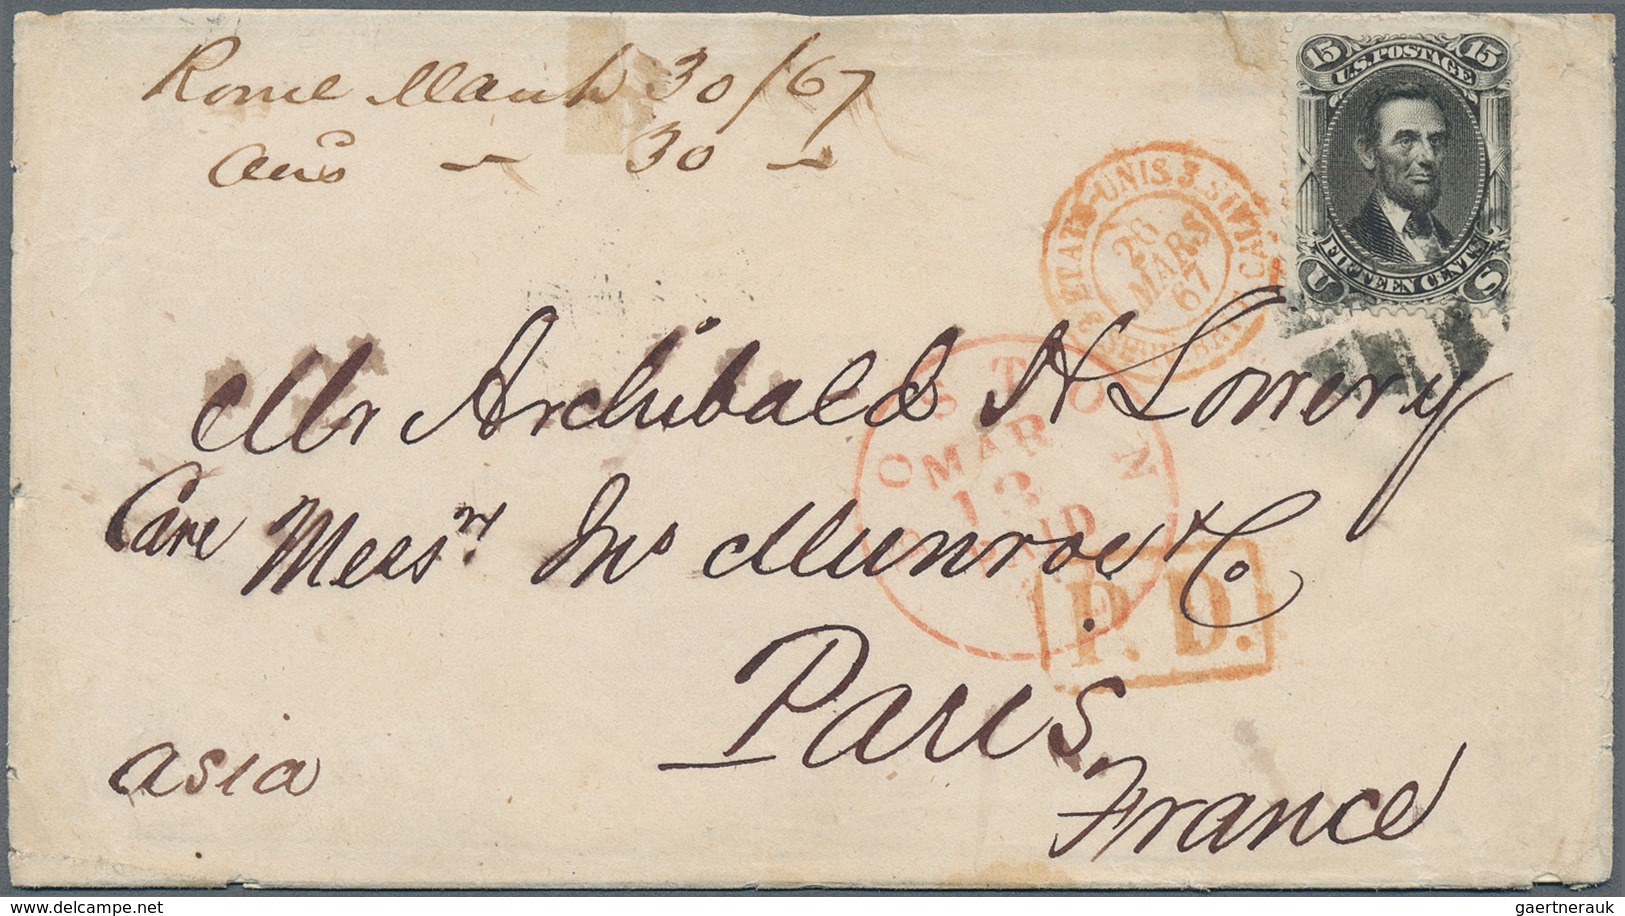 Rome March 30/67
Ans - 30 -
15 U.S. POSTAGE 15
FIFTEEN CENTS
U S
ETATS-UNIS. 3 SERV. BR. CALAIS 3
26
MARS
67
BOSTON
MAR
13
PAID
P.D.
Mr Archibald H Lowery
Care Messrs Jno Munroe & Co
Paris
France
asia
delcampe.net
gaertnerauk